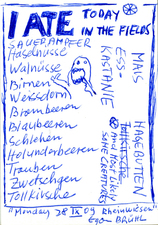 I ATE TODAY
IN THE FIELDS
SAUERAMPFER
Haselnüsse
Walnüsse
Birnen
Weissdorn
Brombeeren
Blaubeeren
Schlehen
Holunderbeeren
Trauben
Zwetschgen
Tollkirsche
ESS-
KASTANIE
MAIS
HAGEBUTTEN
Tollkirsche
AND MOST LIKELY
SOME CREATURES
"Monday 28 IX 09 Rheinwiesen"
Ego BRÜHL